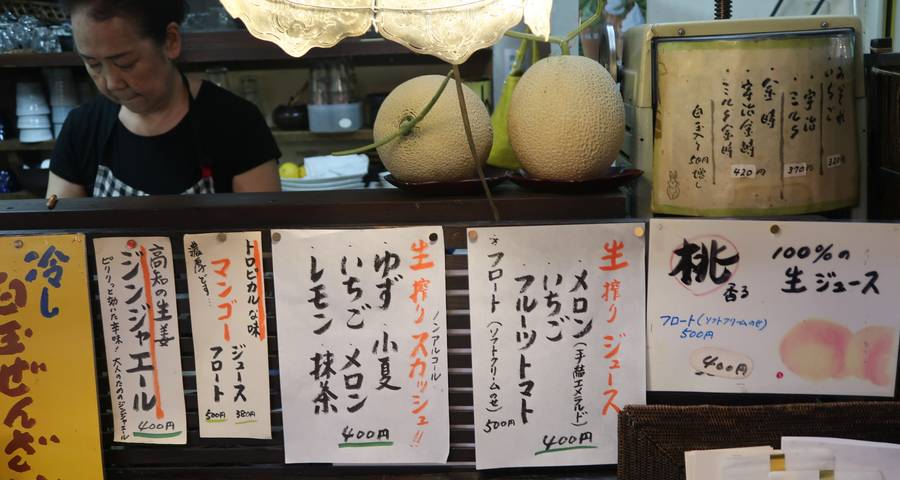 冷し
白玉ぜんざい
高知の生姜
ジンジャエール
ピリリッと効いた辛味!大人のためのジンジャエール
400円
トロピカルな味
マンゴー
濃厚です
ジュース
380円
フロート
500円
生搾りスカッシュ!!
ノンアルコール
ゆず 小夏
いちご メロン
レモン 抹茶
400円
生搾りジュース
メロン(手結エメラルド)
いちご
フルーツトマト
400円
フロート(ソフトクリームのせ)
500円
桃
香る
100%の
生ジュース
フロート(ソフトクリームのせ)
500円
400円
みぞれ
いちご
320円
宇治
ミルク
370円
金時
宇治金時
ミルク金時
420円
白玉入り 50円増し